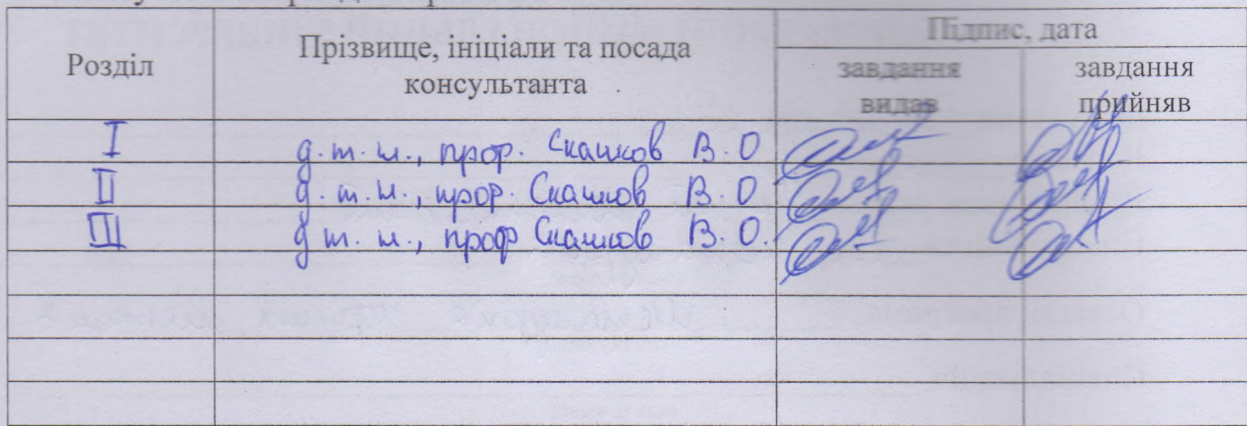 Розділ
Прізвище, ініціали та посада
консультанта
Підпис, дата
завдання
видав
завдання
прийняв
I д.т.н., проф. Скачков В. О
II д.т.н., проф. Скачков В. О
III д т. н., проф Скачков В. О.